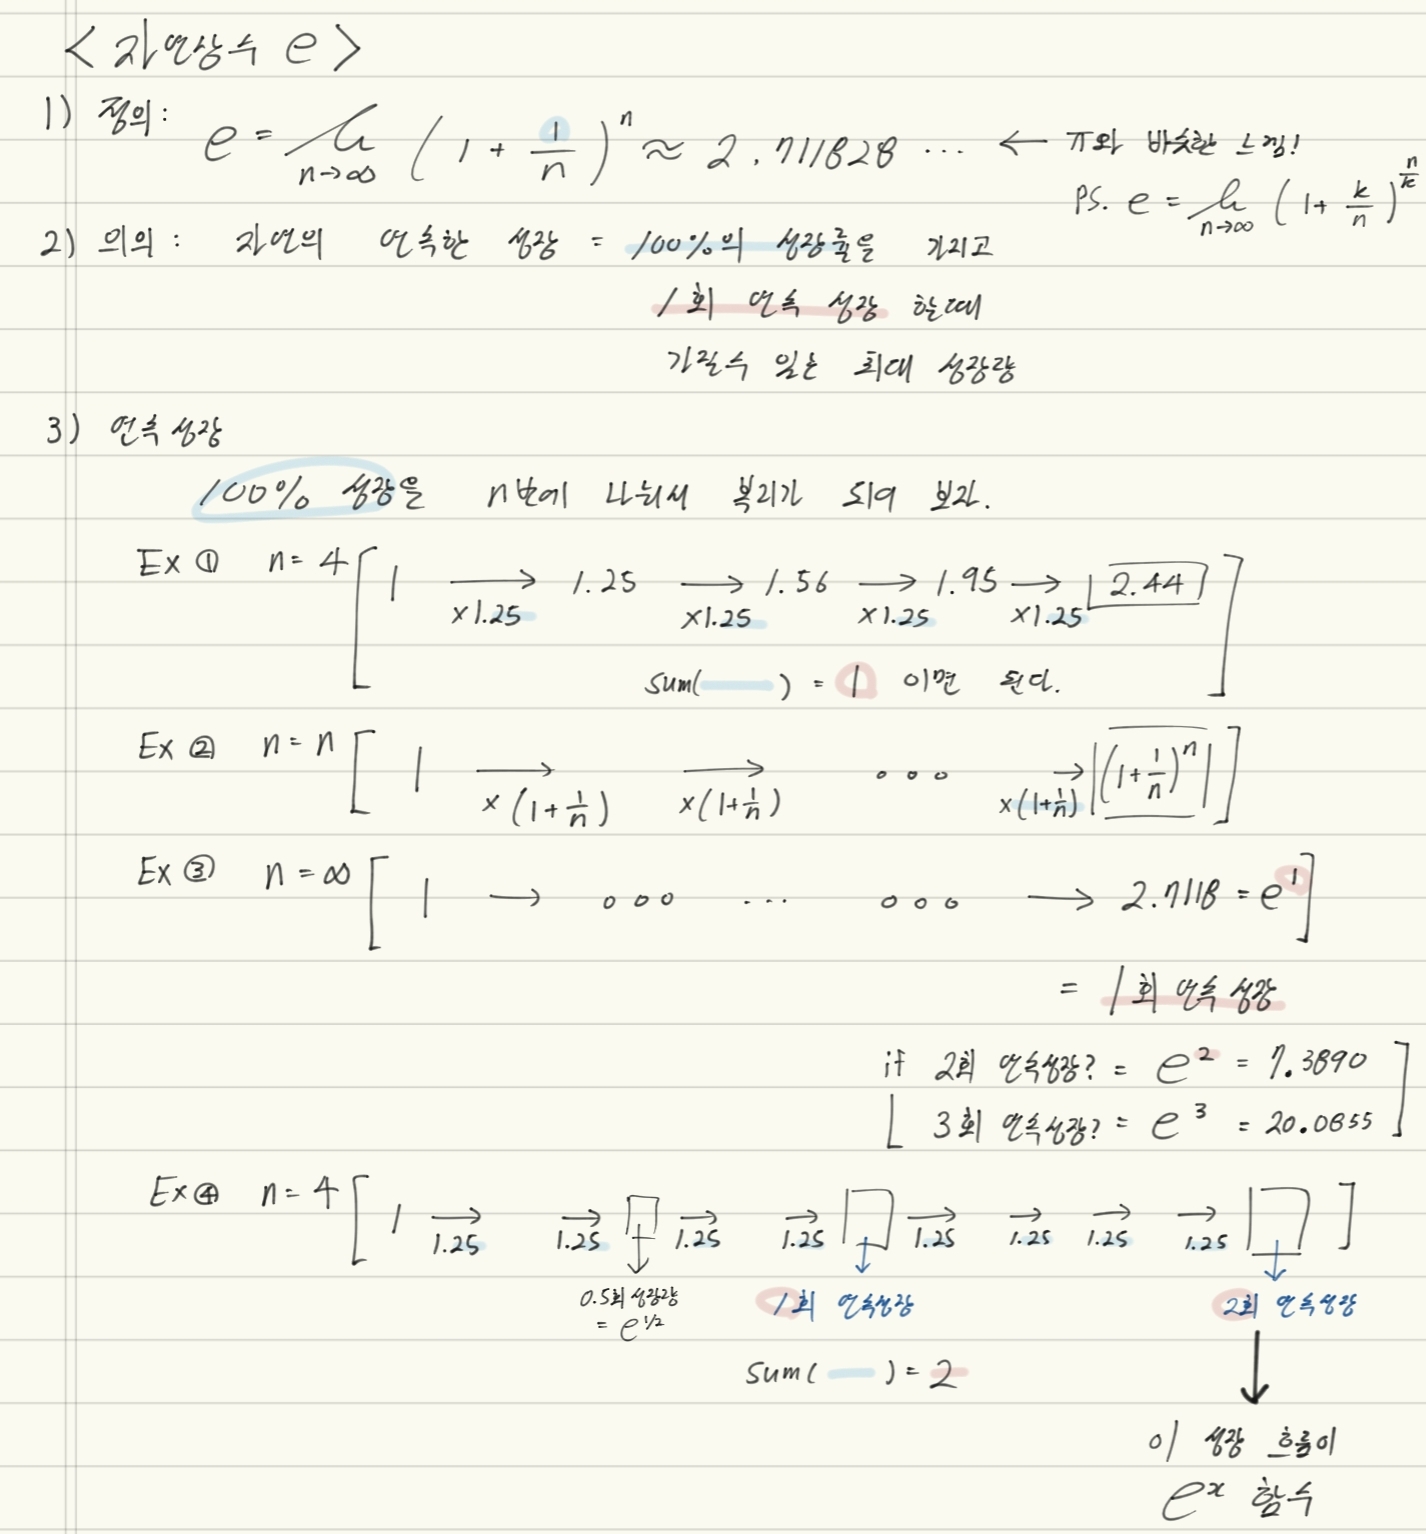 < 자연상수 e >
1) 정의: e = lim n→∞ (1 + 1/n)^n ≈ 2.711828 ··· ← π와 비슷한 느낌!
PS. e = lim n→∞ (1 + k/n)^(n/k)
2) 의의 : 자연의 연속한 성장 = 100%의 성장률을 가지고
1회 연속 성장 할때
가질수 있는 최대 성장량
3) 연속성장
100% 성장을 n번에 나눠서 복리가 되어 보자.
Ex ① n = 4 [ 1 → ×1.25 1.25 → ×1.25 1.56 → ×1.25 1.95 → ×1.25 2.44 ]
sum( ) = 1 이면 된다.
Ex ② n = n [ 1 → ×(1+1/n) → ×(1+1/n) ∘∘∘ → ×(1+1/n) (1+1/n)^n ]
Ex ③ n = ∞ [ 1 → ∘∘∘ ··· ∘∘∘ → 2.7118 = e^1 ]
= 1회 연속 성장
if 2회 연속성장? = e^2 = 7.3890
3회 연속성장? = e^3 = 20.0855
Ex ④ n = 4 [ 1 → 1.25 → 1.25 → 1.25 → 1.25 → 1.25 → 1.25 → 1.25 → 1.25 ]
0.5회 성장량 1회 연속성장 2회 연속성장
= e^1/2
sum( ) = 2
이 성장 흐름이
e^x 함수